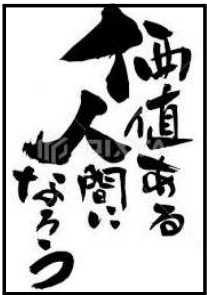 価値ある
人間に
なろう